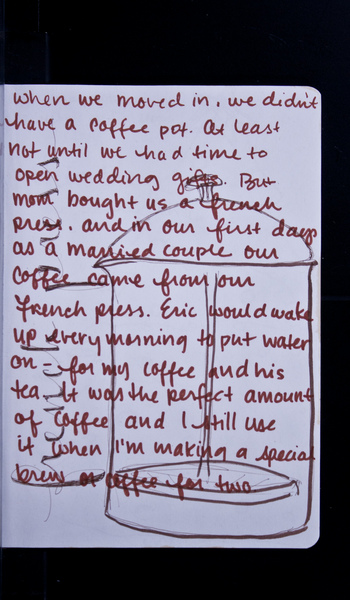 when we moved in, we didn't
have a coffee pot. At least
not until we had time to
open wedding gifts. But
mom bought us a french
press. and in our first days
as a married couple our
coffee came from our
french press. Eric would wake
up every morning to put water
on - for my coffee and his
tea. It was the perfect amount
of coffee and I still use
it when I'm making a special
brew of coffee for two